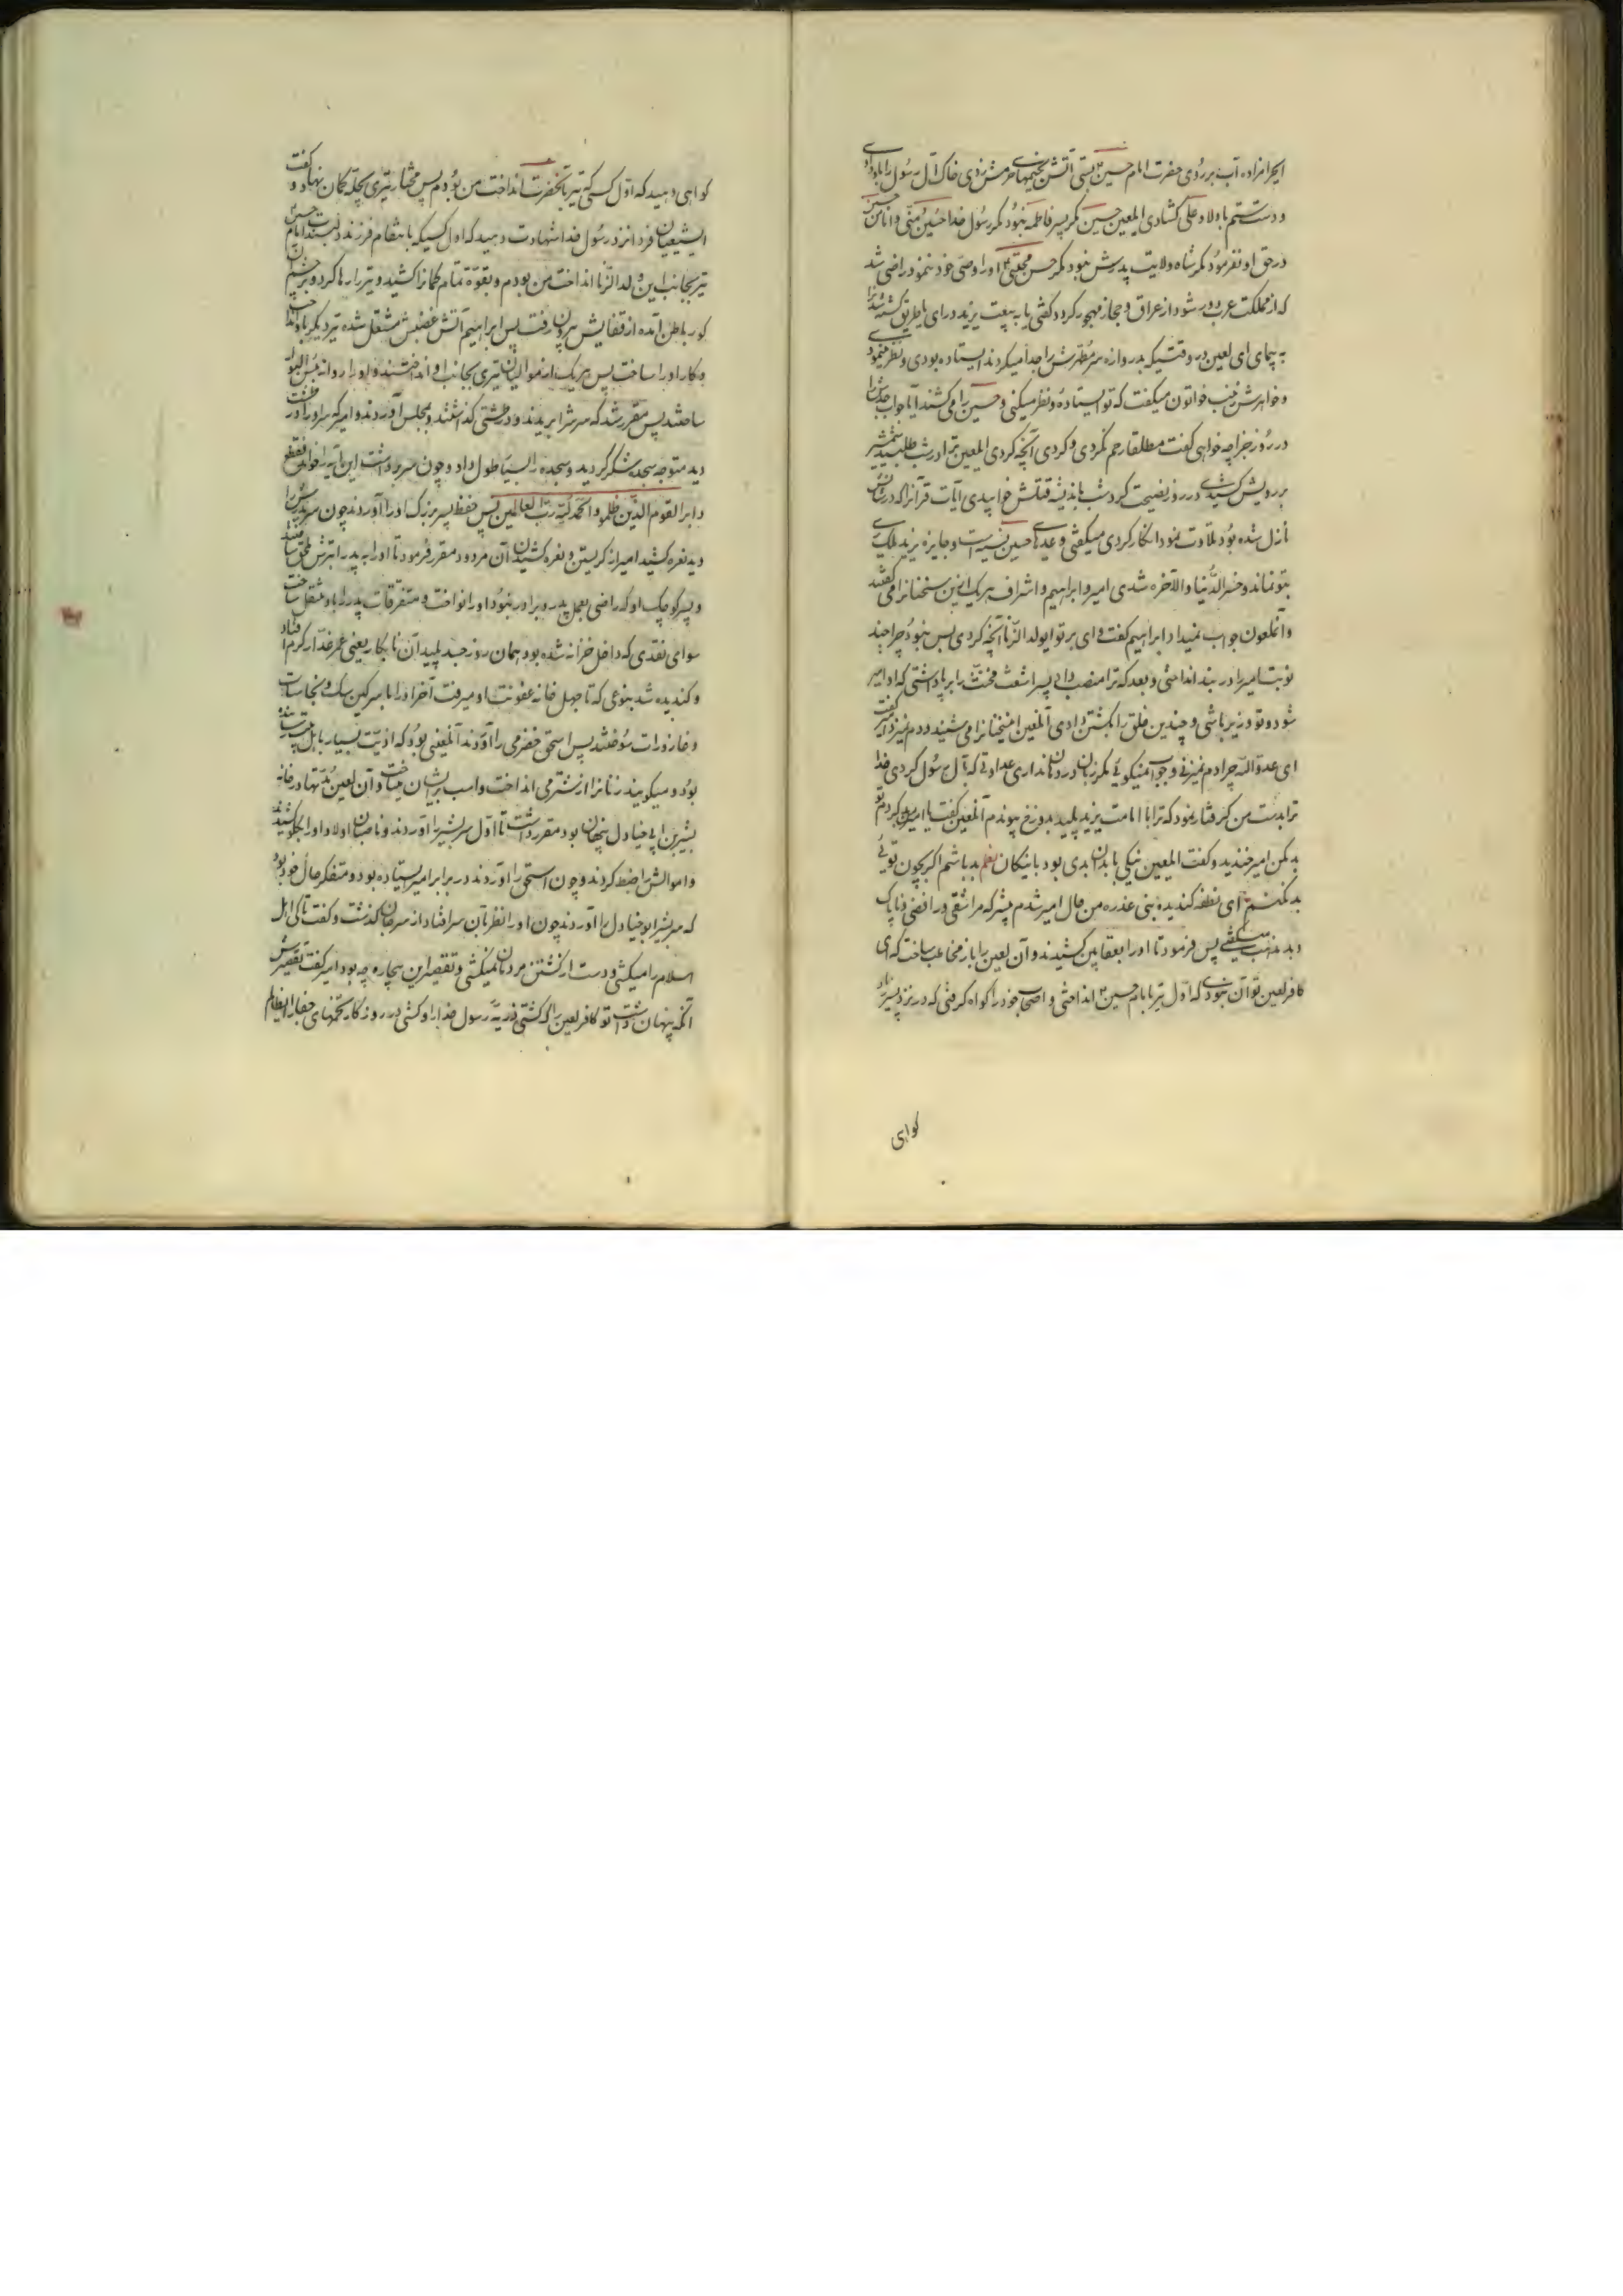 ایحرامزاده آب بر روی حضرت امام حسین بستی آتش بخیمهای حرمش زدی خاک آل رسول را بباد دادی
و دست ستم باولاد علی کشادی ایلعین حسین مکر پسر فاطمه نبود مکر رسول خدا حسین منی و انا من حسین
در حق او نفرمود مکر شاه ولایت پدرش نبود مکر حسن مجتبی او را وصی خود ننمود راضی شد
که از مملکت عرب دور شود از عراق و حجاز مهجور کردد کفتی یا به بیعت یزید درای یا طریق کشته شدنرا
به پیمای ای لعین در وقتیکه بدروازه سر مطهرش را جدا میکردند ایستاده بودی و نظر مینمودی
و خواهرش زینب خواتون میکفت که تو ایستاده و نظر میکنی و حسین را می کشند آیا جواب جدش را
در روز جزا چه خواهی کفت مطلقا رحم نکردی و کردی آنچه کردی ایلعین ترا در شب طلبید شمشیر
بر رویش کشیدی در روز نصیحت کرد شب باندیشه قتلش خوابیدی آیات قرآنرا که در شانش
نازل شده بود تلاوت نمود انکار کردی میکفتی وعدهای حسین نسیه است و جایزه یزید ملک ری
بتو نماند و خسر الدنیا والآخره شدی امیر و ابراهیم و اشراف هر یک ازین سخنانرا می کفتند
و آنملعون جواب نمیداد ابراهیم کفت وای بر تو ایولد الزنا آنچه کردی بس نبود چرا چند
نوبت امیر را در بند انداختی و بعد که ترا منصب دادی پسر اشعث مخنث را بر پا داشتی که او امیر
شود و تو وزیر باشی و چندین خلق را بکشتن دادی آنلعین اینسخنانرا می شنید و دم نمیزد امیر کفت
ای عدو الله چرا دم نمیزنی و جواب نمیکوئی مکر زبان در دهان نداری عداوتی که بآل رسول کردی خدا
ترا بدست من کرفتار نمود که ترا با امامت یزید پلید بدوزخ پیوندم آنلعین کفت یا امیر بد کردم تو
بد مکن امیر خندید و کفت ایلعین نیکی با بدان بدی بود با نیکان بدباشم اکر بچون توئی
بد نکنم ای نطفه کندیده بنی عذره من حال امیر شدم پیشتر که مرا شقی و رافضی و ناپاک
و بد مذهب میکفتی پس فرمود تا او را بعقابین کشیدند و آن لعین را باز مخاطب ساخت که ای
کافر لعین تو آن نبودی که اول تیر بامام حسین انداختی و اصحاب خود را کواه کرفتی که در نزد پسر زیاد
کواهی
کواهی دهید که اول کسی که تیر بآنحضرت انداخت من بودم پس مختار تیری بچله کمان نهاد و کفت
ایشیعیان فردا نزد رسول خدا شهادت دهید که اول کسیکه بانتقام فرزند دلبندت امام حسین
تیر بجانب این ولد الزنا انداخت من بودم و بقوه تمام کمانرا کشید و تیر را رها کرد و بر چشم آن
کور باطن آمده از قفایش بیرون رفت پس ابراهیم آتش غضبش مشتعل شده تیر دیکر باو انداخت
و کار او را ساخت پس هر یک از موالیان تیری بجانب او انداختند و او را روانه بئس البوار
ساختند پس مقرر شد که سرشرا بریدند و در طشتی کذاشتند و بمجلس آوردند و امیر که سر او را در طشت
دید متوجه سجده شکر کردید و سجده را بسیار طول داد و چون سر برداشت این آیه را خواند فقطع
دابر القوم الذین ظلموا والحمد لله رب العالمین پس حفظ پسر بزرک او را آوردند چون سر پدرش را
دید نعره کشید امیر از کریستن و نعره کشیدن آن مردود مقرر فرمود تا او را به پدر ابترش ملحق ساختند
و پسر کوچک او که راضی بعمل پدر و برادر نبود او را نواخت و متفرقات پدر را باو منتقل ساخت
سوای نقدی که داخل خزانه شده بود همان روز جسد پلید آن نابکار یعنی عمر غدار کرم افتاد
و کندیده شد بنوعی که تا چهل خانه عفونت او میرفت آخر او را با سرکین سک و نجاسات
و قازورات سوختند پس اسحق حضرمی را آوردند آنلعینی بود که اذیت بسیار باهل بیت رسانیده
بود و میکویند زنانرا از شتر می انداخت و اسب بر ایشان میتاخت و آن لعین مدتها در خانه
بشیر بن ابی خیادل پنهان بود مقرر داشت تا اول سر بشیر را آوردند و ناصبان اولاد او را بجلو کشیدند
و اموالش را ضبط کردند و چون اسحق را آوردند در برابر امیر ایستاده بود و متفکر حال خود بود
که سر بشیر ابو خیادل را آوردند چون او را نظر بآن سر افتاد از سر جان کذشت و کفت تا کی اهل
اسلام را میکشی و دست از کشتن مردمان نمیکشی و تقصیر این بیچاره چه بود امیر کفت تقصیرش
آنکه پنهان داشت تو کافر لعین را که کشتی ذریه رسول خدا را و کشتی در روزکار تخمهای جفا را ایظالم